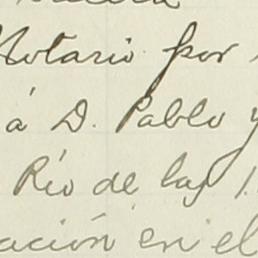 Notario por
á D. Pablo y
Río de las
ación en el